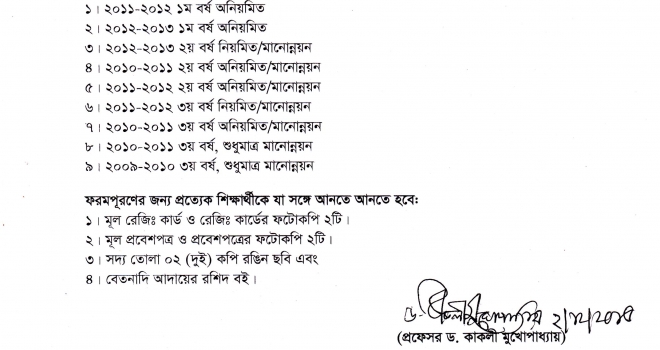 ১। ২০১১-২০১২ ১ম বর্ষ অনিয়মিত
২। ২০১২-২০১৩ ১ম বর্ষ অনিয়মিত
৩। ২০১২-২০১৩ ২য় বর্ষ নিয়মিত/মানোন্নয়ন
৪। ২০১০-২০১১ ২য় বর্ষ অনিয়মিত/মানোন্নয়ন
৫। ২০১১-২০১২ ২য় বর্ষ অনিয়মিত/মানোন্নয়ন
৬। ২০১১-২০১২ ৩য় বর্ষ নিয়মিত/মানোন্নয়ন
৭। ২০১০-২০১১ ৩য় বর্ষ অনিয়মিত/মানোন্নয়ন
৮। ২০১০-২০১১ ৩য় বর্ষ, শুধুমাত্র মানোন্নয়ন
৯। ২০০৯-২০১০ ৩য় বর্ষ, শুধুমাত্র মানোন্নয়ন
ফরমপূরণের জন্য প্রত্যেক শিক্ষার্থীকে যা সঙ্গে আনতে আনতে হবে:
১। মূল রেজিঃ কার্ড ও রেজিঃ কার্ডের ফটোকপি ২টি।
২। মূল প্রবেশপত্র ও প্রবেশপত্রের ফটোকপি ২টি।
৩। সদ্য তোলা ০২ (দুই) কপি রঙিন ছবি এবং
৪। বেতনাদি আদায়ের রশিদ বই।
(প্রফেসর ড. কাকলী মুখোপাধ্যায়)